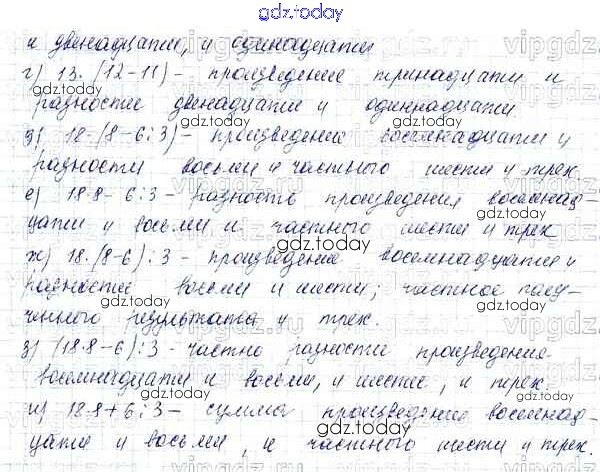 gdz.today
и двенадцати, и одинадцати
г) 13·(12-11) - произведение тринадцати и
разности двенадцати и одиннадцати.
д) 18·(8-6:3) - произведение восемнадцати и
разности восьми и частного шести и трех
е) 18·8-6:3 - разность произведения восемнад-
цати и восьми и частного шести и трех
ж) 18·(8-6):3 - произведение восемнадцати и
разности восьми и шести; частное полу-
ченного результата и трех.
з) (18·8-6):3 - частно разности произведение
восемнадцати и восьми, и шести, и трех.
и) 18·8+6:3 - сумма произведение восемнад-
цати и восьми, и частного шести и трех.